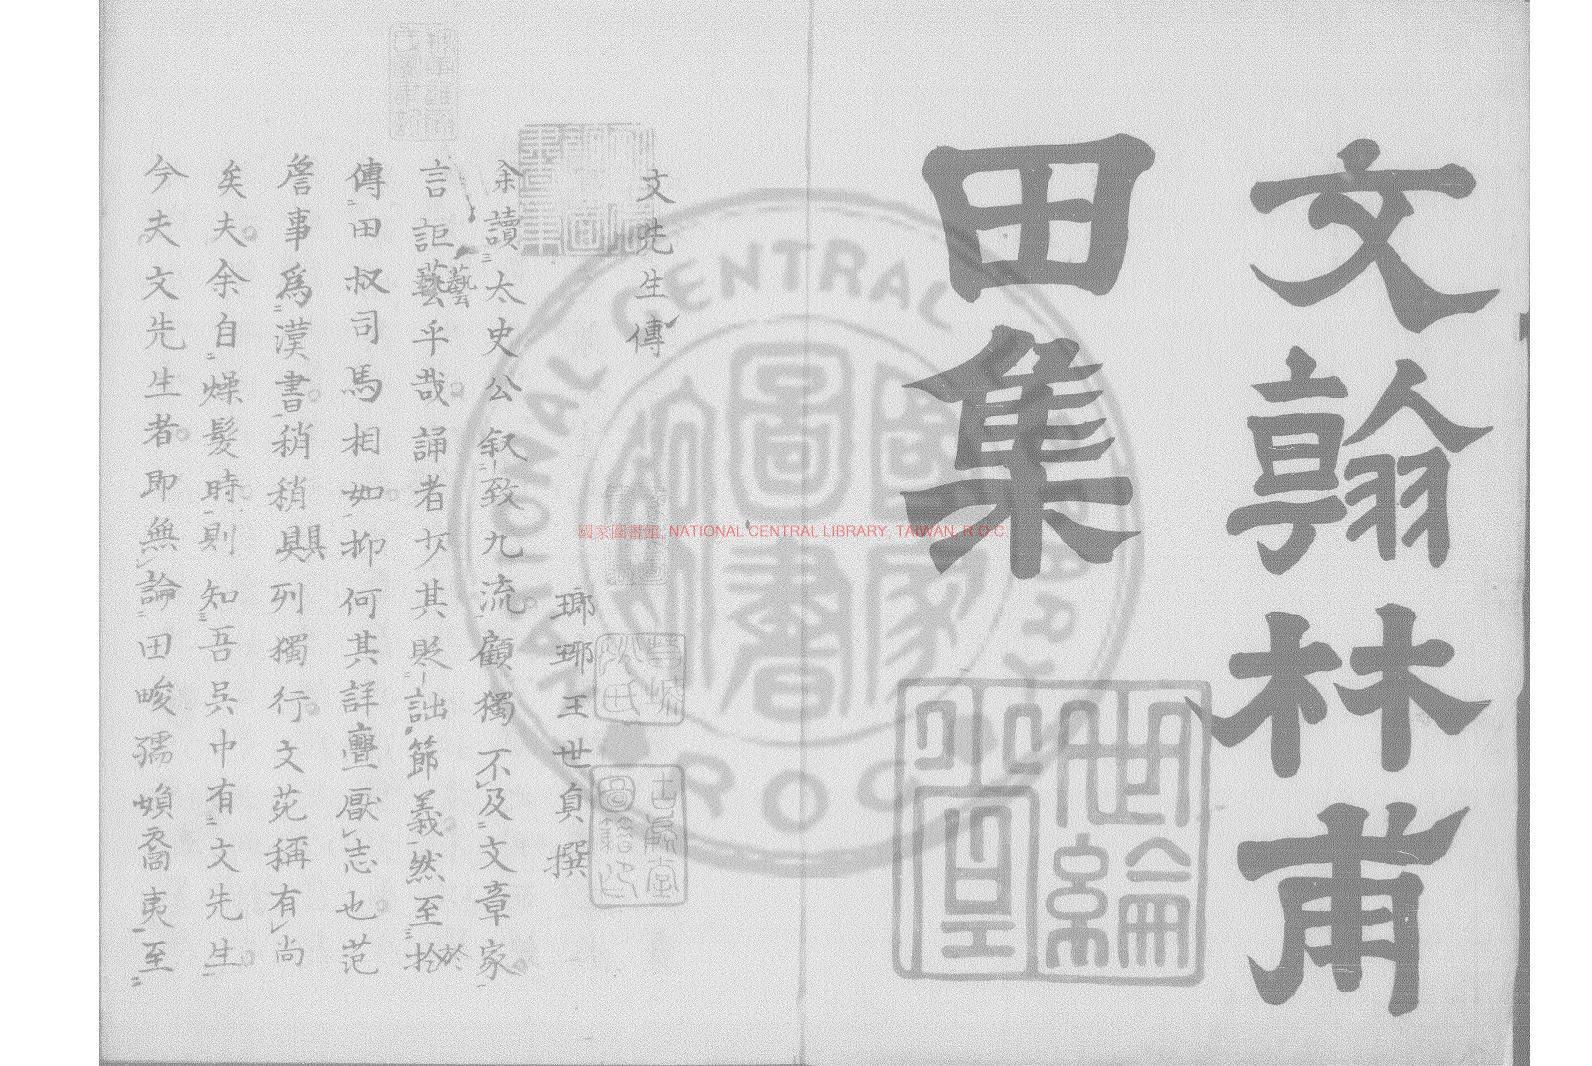 文翰林甫
田集
文先生傳
瑯琊王世貞撰
余讀太史公叙致九流顧獨不及文章家
言詎藝乎哉誦者少其貶詘節義然至於
傳田叔司馬相如抑何其詳亹厭志也范
詹事為漢書稍稍具列獨行文苑稱有尚
矣夫余自燥髮時則知吾吳中有文先生
今夫文先生者即無論田畯孺婦裔夷至
藝
具
於
國家圖書館, NATIONAL CENTRAL LIBRARY, TAIWAN, R.O.C
NATIONAL CENTRAL LIBRARY
R O C
國家圖書館